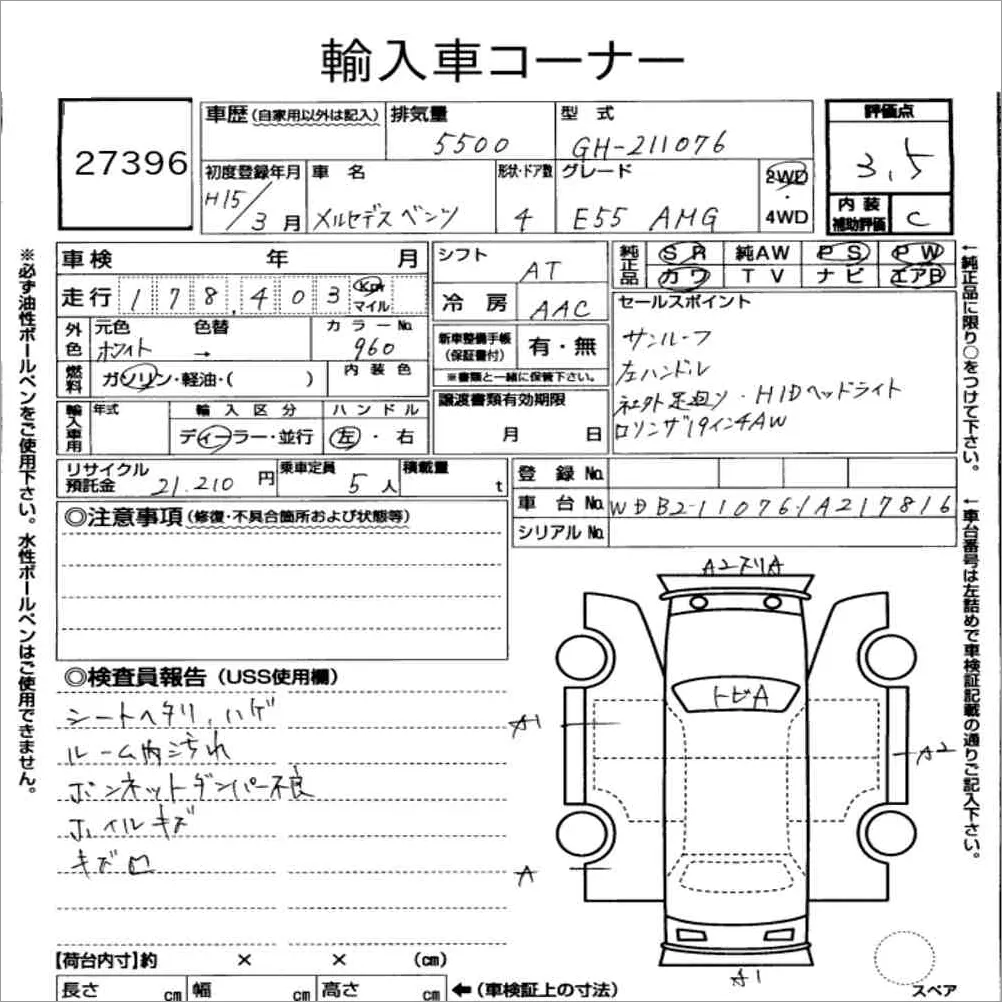 輸入車コーナー
27396
車歴(自家用以外は記入)
排気量
5500
型 式
GH-211076
評価点
3.5
初度登録年月
H15/3月
車 名
メルセデス ベンツ
形状・ドア数
4
グレード
E55 AMG
2WD
・
4WD
内 装
補助評価
C
※必ず油性ボールペンをご使用下さい。水性ボールペンはご使用できません。
車検 年 月
走行 178,403 Km
マイル
外色
元色 色替
ホワイト →
カラーNo.
960
燃料
ガソリン・軽油・( )
内 装 色
輸入車用
年式
輸 入 区 分
ディーラー・並行
ハ ン ド ル
左 ・ 右
シフト
AT
冷 房
AAC
新車整備手帳
(保証書付)
有・無
※書類と一緒に保管下さい。
譲渡書類有効期限
月 日
純正品
SR 純AW PS PW
カワ TV ナビ エアB
セールスポイント
サンルーフ
左ハンドル
社外足廻り・HIDヘッドライト
ロリンザ19インチAW
←純正品に限り○をつけて下さい。
リサイクル
預託金
21.210 円
乗車定員
5 人
積載量
t
登 録 No.
車 台 No.
WDB2110761A217816
シリアル No.
←車台番号は左詰めで車検証記載の通りご記入下さい。
◎注意事項(修復・不具合箇所および状態等)
◎検査員報告(USS使用欄)
シートヘタリ、ハゲ
ルーム内汚れ
ボンネットダンパー不良
ホイルキズ
キズ凹
A2スリA
トビA
A1
A2
A
A1
スペア
【荷台内寸】約 × × (cm)
長さ cm 幅 cm 高さ cm ←(車検証上の寸法)